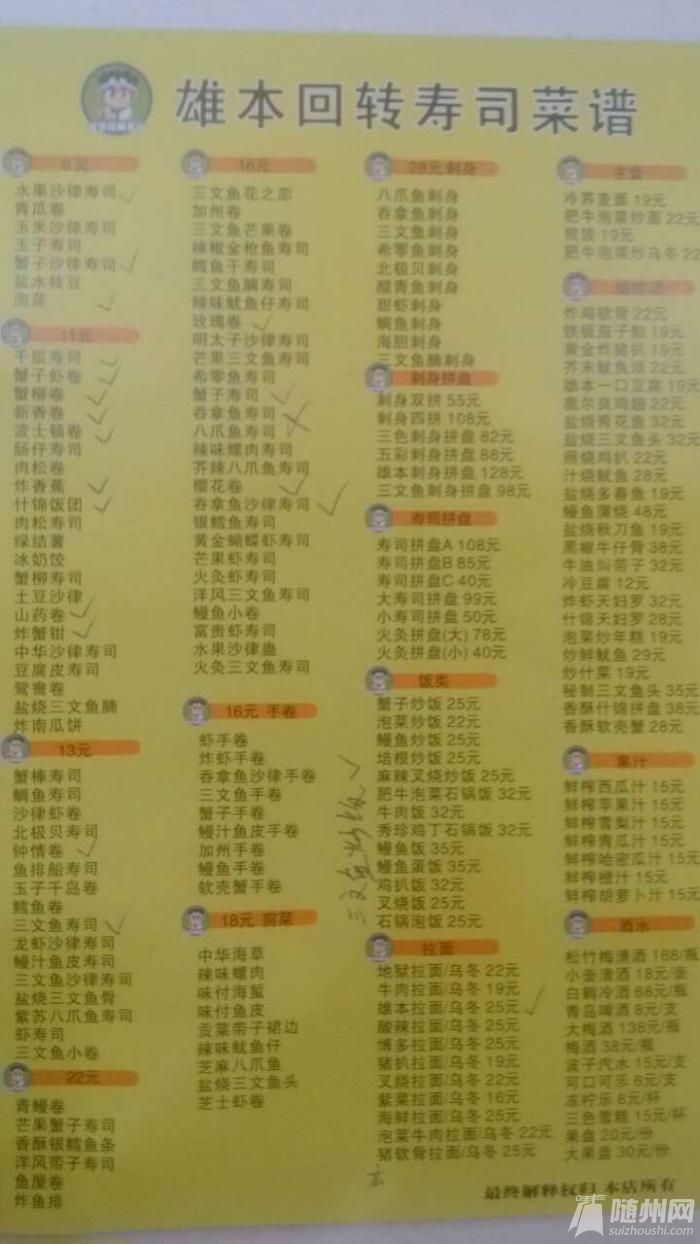 雄本回转寿司菜谱
6元
水果沙律寿司
青瓜卷
玉米沙律寿司
玉子寿司
蟹子沙律寿司
盐水枝豆
泡菜
11元
千层寿司
蟹子虾卷
蟹柳卷
新香卷
波士顿卷
肠仔寿司
肉松卷
炸香蕉
什锦饭团
肉松寿司
绿结薯
冰奶饺
蟹柳寿司
土豆沙律
山药卷
炸蟹钳
中华沙律寿司
豆腐皮寿司
鸳鸯卷
盐烧三文鱼腩
炸南瓜饼
13元
蟹棒寿司
鲷鱼寿司
沙律虾卷
北极贝寿司
钟情卷
鱼排船寿司
玉子千岛卷
鳕鱼卷
三文鱼寿司
龙虾沙律寿司
鳗汁鱼皮寿司
三文鱼沙律寿司
盐烧三文鱼骨
紫苏八爪鱼寿司
虾寿司
三文鱼小卷
22元
青鳗卷
芒果蟹子寿司
香酥银鳕鱼条
洋风带子寿司
鱼屋卷
炸鱼排
16元
三文鱼花之恋
加州卷
三文鱼芒果卷
辣椒金枪鱼寿司
鳕鱼干寿司
三文鱼腩寿司
辣味鱿鱼仔寿司
玫瑰卷
明太子沙律寿司
芒果三文鱼寿司
希零鱼寿司
蟹子寿司
吞拿鱼寿司
八爪鱼寿司
辣味螺肉寿司
芥辣八爪鱼寿司
樱花卷
吞拿鱼沙律寿司
银鳕鱼寿司
黄金蝴蝶虾寿司
芒果虾寿司
火灸虾寿司
洋风三文鱼寿司
鳗鱼小卷
富贵虾寿司
水果沙律蛊
火灸三文鱼寿司
16元 手卷
虾手卷
炸虾手卷
吞拿鱼沙律手卷
三文鱼手卷
蟹子手卷
鳗汁鱼皮手卷
加州手卷
鳗鱼手卷
软壳蟹手卷
18元 前菜
中华海草
辣味螺肉
味付海蜇
味付鱼皮
贡菜带子裙边
辣味鱿鱼仔
芝麻八爪鱼
盐烧三文鱼头
芝士虾卷
三文鱼炒饭
28元 刺身
八爪鱼刺身
吞拿鱼刺身
三文鱼刺身
希零鱼刺身
北极贝刺身
醋青鱼刺身
甜虾刺身
鲷鱼刺身
海胆刺身
三文鱼腩刺身
刺身拼盘
刺身双拼 55元
刺身四拼 108元
三色刺身拼盘 82元
五彩刺身拼盘 88元
雄本刺身拼盘 128元
三文鱼刺身拼盘 98元
寿司拼盘
寿司拼盘A 108元
寿司拼盘B 85元
寿司拼盘C 40元
大寿司拼盘 99元
小寿司拼盘 50元
火灸拼盘(大) 78元
火灸拼盘(小) 40元
饭类
蟹子炒饭 25元
泡菜炒饭 22元
鳗鱼炒饭 25元
培根炒饭 25元
麻辣叉烧炒饭 25元
肥牛泡菜石锅饭 32元
牛肉饭 32元
秀珍鸡丁石锅饭 32元
鳗鱼饭 35元
鳗鱼蛋饭 35元
鸡扒饭 32元
叉烧饭 25元
石锅泡饭 25元
拉面
地狱拉面/乌冬 22元
牛肉拉面/乌冬 19元
雄本拉面/乌冬 25元
酸辣拉面/乌冬 25元
博多拉面/乌冬 25元
猪扒拉面/乌冬 19元
叉烧拉面/乌冬 22元
紫菜拉面/乌冬 16元
海鲜拉面/乌冬 25元
泡菜牛肉拉面/乌冬 22元
猪软骨拉面/乌冬 25元
主食
冷荞麦面 19元
肥牛泡菜炒面 22元
煎饺 19元
肥牛泡菜炒乌冬 22
炸鸡软骨 22元
铁板茄子船 19元
黄金炸猪扒 19元
芥末鱿鱼须 22元
雄本一口豆腐 19元
奥尔良鸡翅 22元
盐烧青花鱼 32元
盐烧三文鱼头 32元
照烧鸡扒 22元
汁烧鱿鱼 28元
盐烧多春鱼 19元
鳗鱼蒲烧 48元
盐烧秋刀鱼 19元
黑椒牛仔骨 38元
牛油焗带子 32元
冷豆腐 12元
炸虾天妇罗 32元
什锦天妇罗 28元
泡菜炒年糕 19元
炒鲜鱿鱼 29元
炒什菜 19元
秘制三文鱼头 35元
香酥什锦拼盘 38元
香酥软壳蟹 28元
果汁
鲜榨西瓜汁 15元
鲜榨苹果汁 15元
鲜榨雪梨汁 15元
鲜榨青瓜汁 15元
鲜榨哈密瓜汁 15元
鲜榨橙汁 15元
鲜榨胡萝卜汁 15元
酒水
松竹梅清酒 168/瓶
小壶清酒 18元/壶
白鹤冷酒 68元/瓶
青岛啤酒 8元/支
大梅酒 138元/瓶
梅酒 38元/瓶
波子汽水 15元/支
可口可乐 6元/支
冻柠乐 8元/杯
三色雪糕 15元/杯
果盘 20元/份
大果盘 30元/份
最终解释权归 本店所有
随州网
suizhoushi.com